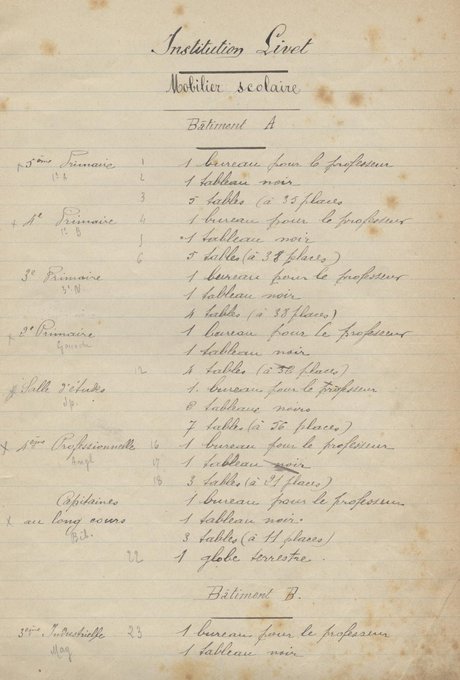 Institution Livet
Mobilier scolaire
Bâtiment A
x 5ème Primaire 1 1 bureau pour le professeur
2 1 tableau noir
3 5 tables (à 35 places)
x 4e Primaire 4 1 bureau pour le professeur
B 5 1 tableau noir
6 5 tables (à 38 places)
3e Primaire 1 bureau pour le professeur
1 tableau noir
4 tables (à 38 places)
x 2e Primaire 1 bureau pour le professeur
1 tableau noir
12 4 tables (à 36 places)
x Salle d'études 1 bureau pour le professeur
Sp. 6 tableaux noirs
7 tables (à 56 places)
x 4ème Professionnelle 16 1 bureau pour le professeur
Angl 17 1 tableau noir
18 3 tables (à 21 places)
Capitaines 1 bureau pour le professeur
x au long cours 1 tableau noir.
Bib. 3 tables (à 11 places)
22 1 globe terrestre.
Bâtiment B.
3ème Industrielle 23 1 bureau pour le professeur
Mag 1 tableau noir